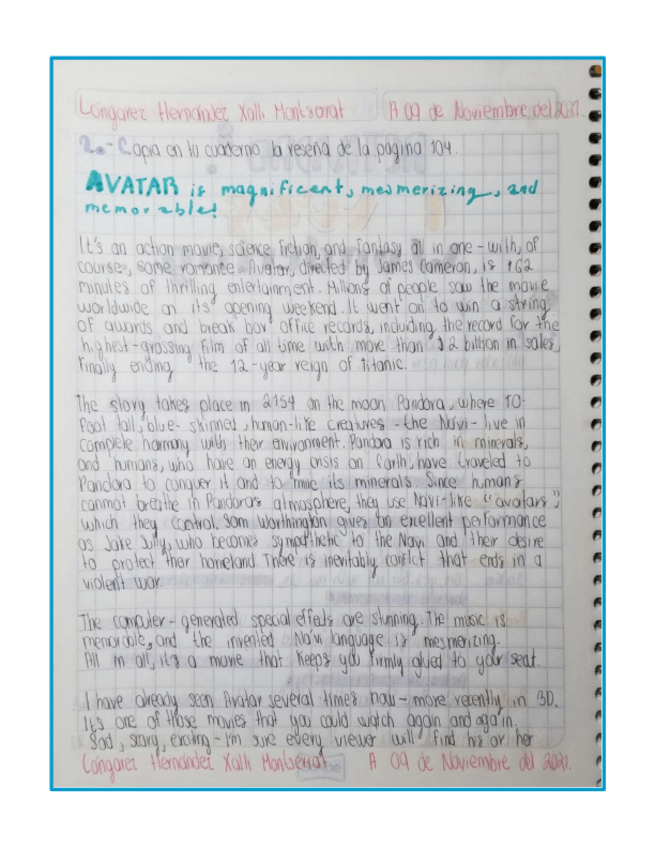 Longarez Hernández Xalli Montserrat A 09 de Noviembre del 2021.
2.- Copia en tu cuaderno la reseña de la página 104.
AVATAR is magnificent, mesmerizing, and
memorable!
It's an action movie, science fiction, and fantasy all in one - with, of
course, some romance. Avatar, directed by James Cameron, is 162
minutes of thrilling entertainment. Millions of people saw the movie
worldwide on its opening weekend. It went on to win a string
of awards and break box office records, including the record for the
highest-grossing film of all time with more than $2 billion in sales,
finally ending the 12-year reign of Titanic.
The story takes place in 2154 on the moon Pandora, where 10-
foot tall, blue-skinned, human-like creatures - the Navi - live in
complete harmony with their environment. Pandora is rich in minerals,
and humans, who have an energy crisis on Earth, have traveled to
Pandora to conquer it and to mine its minerals. Since humans
cannot breathe in Pandora's atmosphere, they use Navi-like "avatars",
which they control. Sam Worthington gives an excellent performance
as Jake Sully, who becomes sympathetic to the Navi and their desire
to protect their homeland. There is inevitably conflict that ends in a
violent war.
The computer-generated special effects are stunning. The music is
memorable, and the invented Na'vi language is mesmerizing.
All in all, it's a movie that keeps you firmly glued to your seat.
I have already seen Avatar several times now - more recently in 3D.
It's one of those movies that you could watch again and again.
Sad, scary, exciting - I'm sure every viewer will find his or her
Longarez Hernández Xalli Montserrat A 09 de Noviembre del 2021.